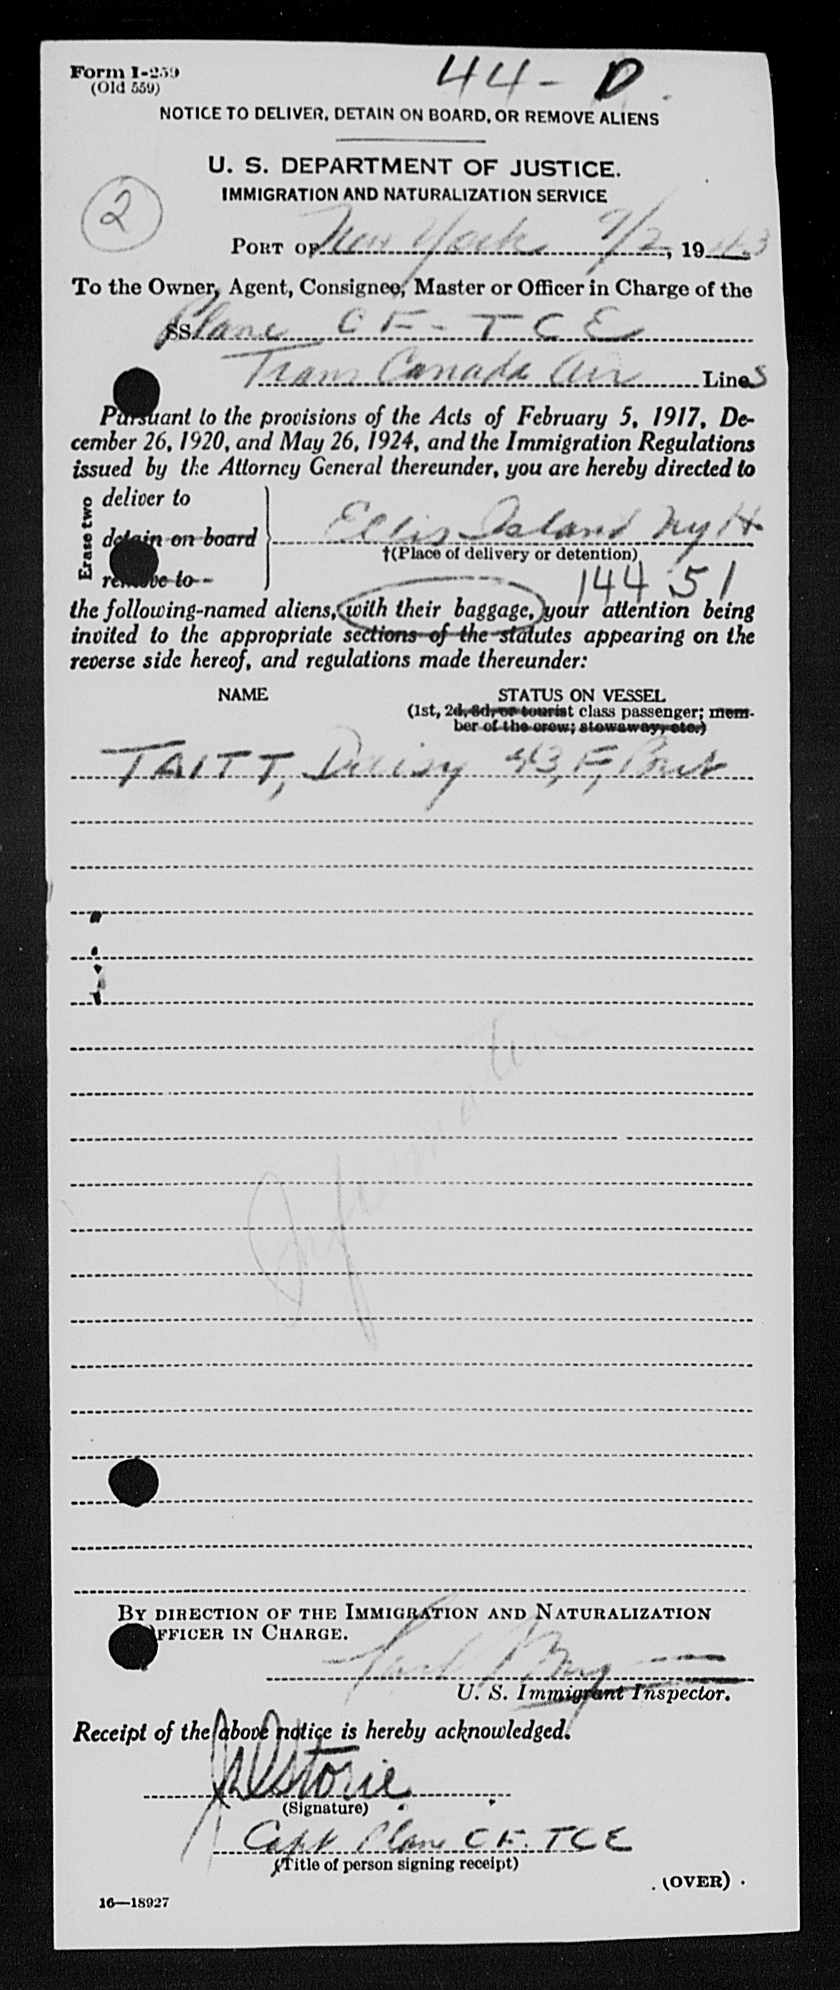 Form I-259
(Old 559)
44- D
NOTICE TO DELIVER, DETAIN ON BOARD, OR REMOVE ALIENS
U. S. DEPARTMENT OF JUSTICE.
IMMIGRATION AND NATURALIZATION SERVICE
2
PORT OF New York 9/2, 1943
To the Owner, Agent, Consignee, Master or Officer in Charge of the
SS Plane CF-TCE
Trans Canada Air Lines
Pursuant to the provisions of the Acts of February 5, 1917, De-
cember 26, 1920, and May 26, 1924, and the Immigration Regulations
issued by the Attorney General thereunder, you are hereby directed to
Erase two
deliver to
detain on board
remove to
Ellis Island NyH
†(Place of delivery or detention)
144 51
the following-named aliens, with their baggage, your attention being
invited to the appropriate sections of the statutes appearing on the
reverse side hereof, and regulations made thereunder:
NAME STATUS ON VESSEL
(1st, 2d, 3d, or tourist class passenger; mem-
ber of the crew; stowaway, etc.)
TAITT, Daisy 43, F, Brit
Information
BY DIRECTION OF THE IMMIGRATION AND NATURALIZATION
OFFICER IN CHARGE.
U. S. Immigrant Inspector.
Receipt of the above notice is hereby acknowledged.
Storie
(Signature)
Capt Plane CF-TCE
(Title of person signing receipt)
(OVER)
16—18927